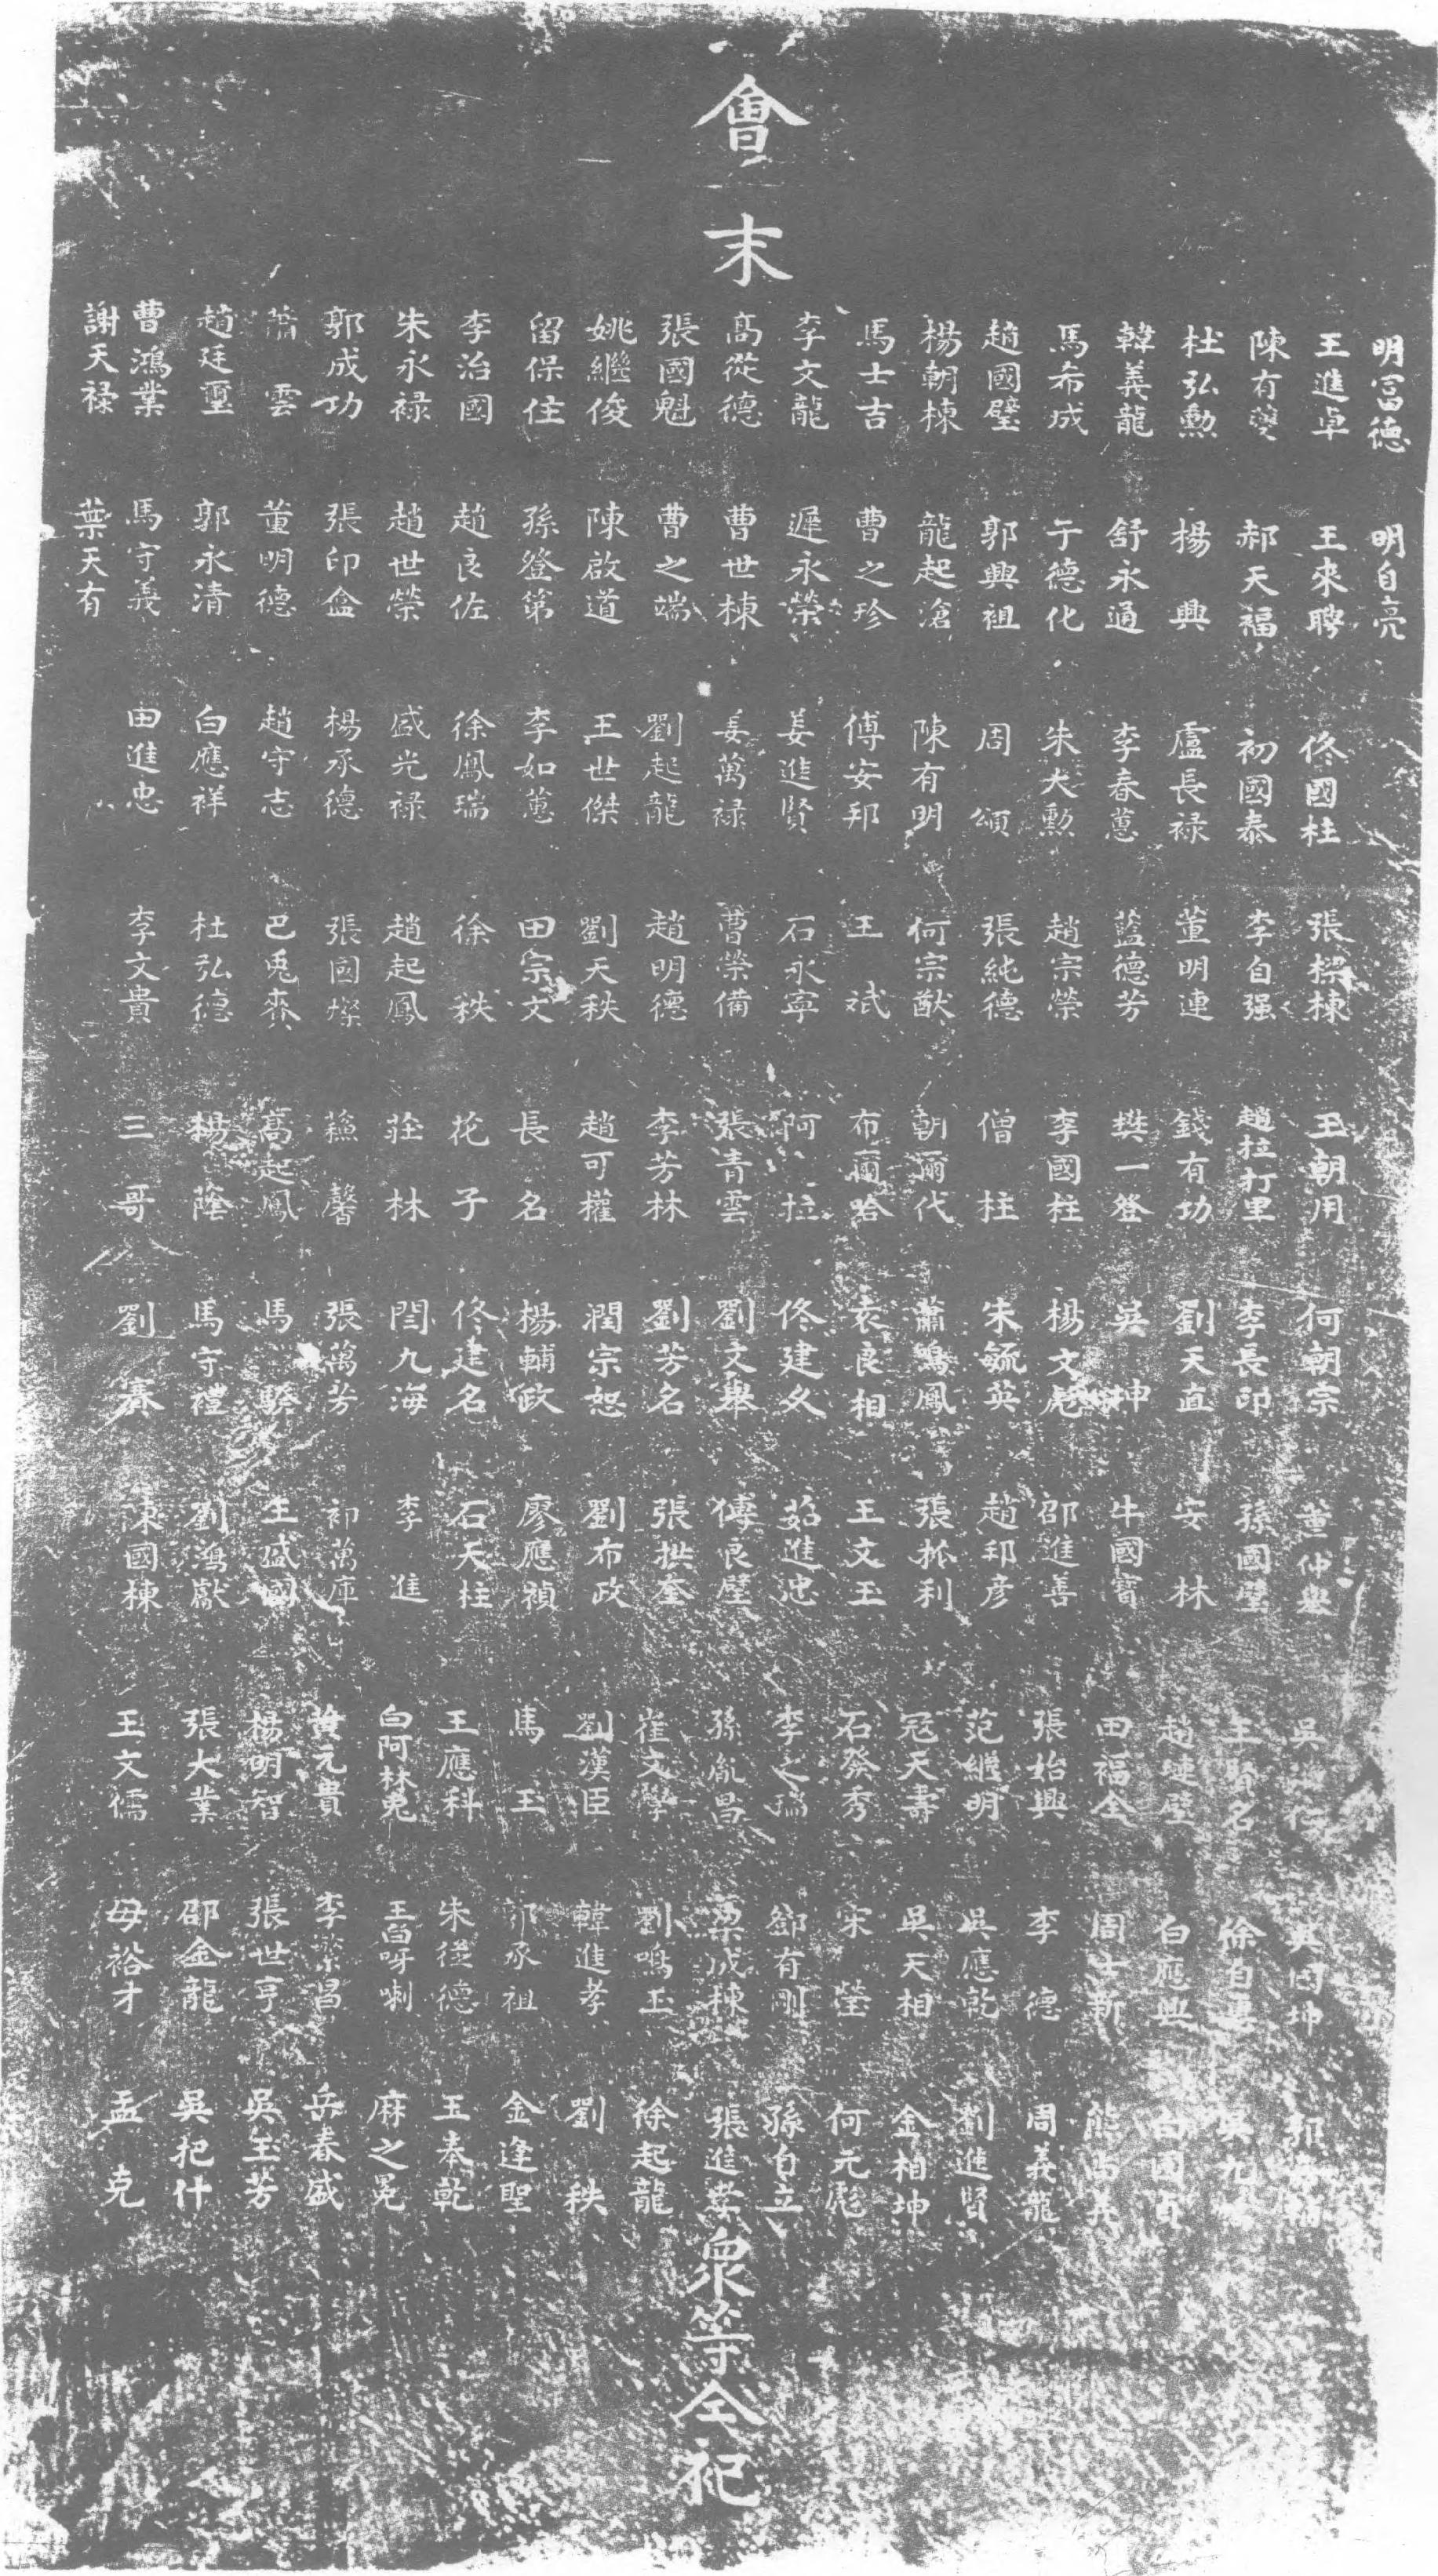 會末
明富德 明自亮
王進卓 王來聘 佟國柱 張樑棟 王朝用 何朝宗 董仲舉 吳仁 吳國坤 郭輔
陳有燮 郝天福 初國泰 李自强 趙拉打里 李長印 孫國璧 王賢名 徐自興 吳九
杜弘勲 楊興 盧長禄 董明連 錢有功 劉天直 安林 趙璉璧 白應興 白國
韓義龍 舒永通 李春蕙 藍德芳 樊一登 吳坤 牛國寶 田福全 周士新 熊義
馬希成 于德化 朱大勲 趙宗榮 李國柱 楊文彪 邵進善 張始興 李德 周義龍
趙國璧 郭興祖 周頌 張純德 僧柱 朱毓英 趙邦彦 范繼明 吳應乾 劉進賢
楊朝棟 龍起滄 陳有明 何宗猷 朝爾代 蕭鳴鳳 張抓利 冦天壽 吳天相 金相坤
馬士吉 曹之珍 傅安邦 王斌 布爾哈 袁良相 王文玉 石發秀 宋瑩 何元彪
李文龍 遲永榮 姜進賢 石永寧 阿拉 佟建文 茹進忠 李之瑞 鄒有剛 孫自立
高從德 曹世棟 姜萬禄 曹榮備 張青雲 劉文舉 傅良璧 孫胤昌 梁成棟 張進業
張國魁 曹之端 劉起龍 趙明德 李芳林 劉芳名 張拱奎 崔文學 劉鳴玉 徐起龍
姚繼俊 陳啟道 王世傑 劉天秩 趙可權 潤宗恕 劉布政 劉漢臣 韓進孝 劉秩
留保住 孫登第 李如蕙 田宗文 長名 楊輔政 廖應禎 馬玉 郭承祖 金逢聖
李治國 趙良佐 徐鳳瑞 徐秩 花子 佟建名 石天柱 王應科 朱從德 王奉乾
朱永禄 趙世榮 盛光禄 趙起鳳 莊林 閆九海 李進 白阿林兎 王白呀喇 麻之冕
郭成功 張印盒 楊承德 張國燦 蘓馨 張萬芳 初萬庫 黄元貴 李榮昌 岳春盛
蕭雲 董明德 趙守志 巴兎賚 高起鳳 馬驂 王盛國 楊明智 張世亨 吳玉芳
趙廷璽 郭永清 白應祥 杜弘德 楊蔭 馬守禮 劉鴻獻 張大業 邵金龍 吳把什
曹鴻業 馬守義 田進忠 李文貴 三哥 劉賽 陳國棟 王文儒 毋裕才 孟克
謝天禄 葉天有
衆等仝祀